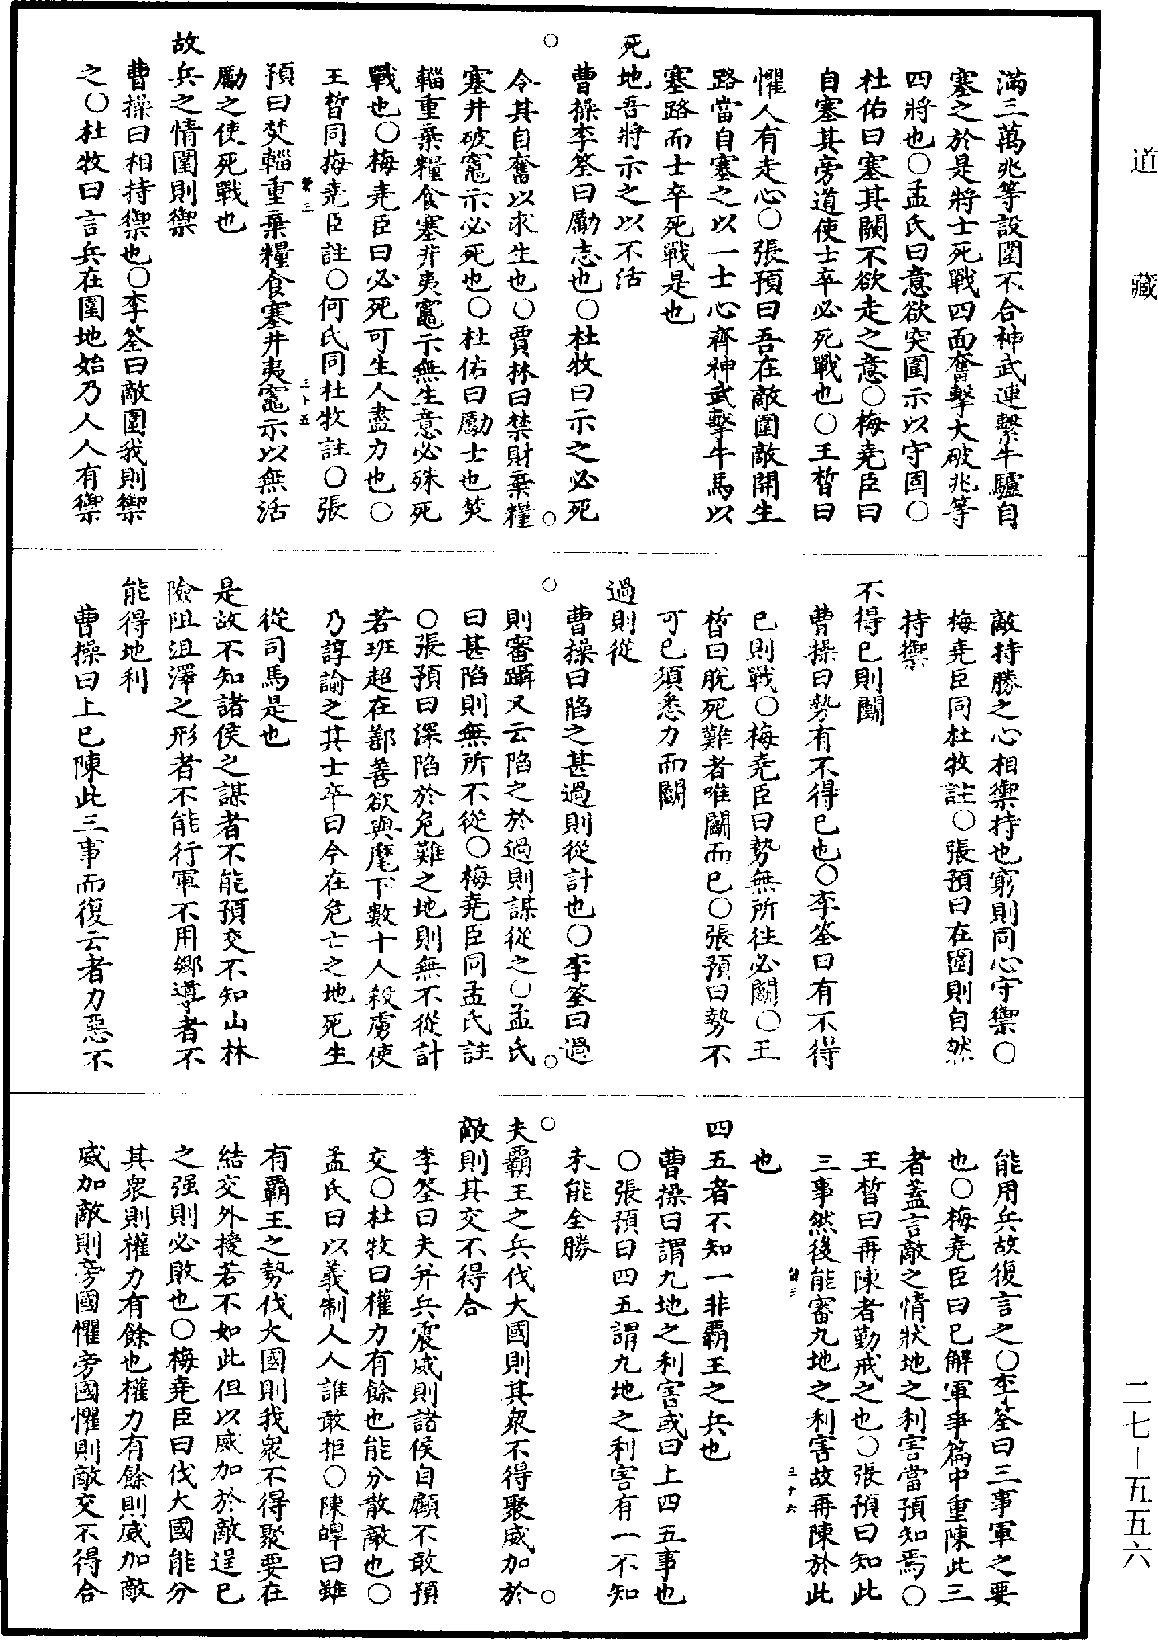 道藏
滿三萬兆等設圍不合神武連繫牛驢自
塞之於是將士死戰四面奮擊大破兆等
四將也○孟氏曰意欲突圍示以守固○
杜佑曰塞其闕不欲走之意○梅堯臣曰
自塞其旁道使士卒必死戰也○王晳曰
懼人有走心○張預曰吾在敵圍敵開生
路當自塞之以一士心齊神武擊牛馬以
塞路而士卒死戰是也
死地吾將示之以不活
曹操李筌曰勵志也○杜牧曰示之必死
令其自奮以求生也○賈林曰禁財棄糧
塞井破竈示必死也○杜佑曰勵士也焚
輜重棄糧食塞井夷竈示無生意必殊死
戰也○梅堯臣曰必死可生人盡力也○
王晳同梅堯臣註○何氏同杜牧註○張
預曰焚輜重棄糧食塞井夷竈示以無活
勵之使死戰也
故兵之情圍則禦
曹操曰相持禦也○李筌曰敵圍我則禦
之○杜牧曰言兵在圍地始乃人人有禦
三十五
敵持勝之心相禦持也窮則同心守禦○
梅堯臣同杜牧註○張預曰在圍則自然
持禦
不得已則鬬
曹操曰勢有不得已也○李筌曰有不得
已則戰○梅堯臣曰勢無所往必鬬○王
晳曰脫死難者唯鬬而已○張預曰勢不
可已須悉力而鬬
過則從
曹操曰陷之甚過則從計也○李筌曰過
則審躡又云陷之於過則謀從之○孟氏
曰甚陷則無所不從○梅堯臣同孟氏註
○張預曰深陷於危難之地則無不從計
若班超在鄯善欲與麾下數十人殺虜使
乃諄諭之其士卒曰今在危亡之地死生
從司馬是也
是故不知諸侯之謀者不能預交不知山林
險阻沮澤之形者不能行軍不用鄉導者不
能得地利
曹操曰上已陳此三事而復云者力惡不
能用兵故復言之○李筌曰三事軍之要
也○梅堯臣曰已解軍爭篇中重陳此三
者蓋言敵之情狀地之利害當預知焉○
王晳曰再陳者勤戒之也○張預曰知此
三事然後能審九地之利害故再陳於此
也
三十六
四五者不知一非霸王之兵也
曹操曰謂九地之利害或曰上四五事也
○張預曰四五謂九地之利害有一不知
未能全勝
夫霸王之兵伐大國則其衆不得聚威加於
敵則其交不得合
李筌曰夫并兵震威則諸侯自顧不敢預
交○杜牧曰權力有餘也能分散敵也○
孟氏曰以義制人人誰敢拒○陳皥曰雖
有霸王之勢伐大國則我衆不得聚要在
結交外援若不如此但以威加於敵逞已
之强則必敗也○梅堯臣曰伐大國能分
其衆則權力有餘也權力有餘則威加敵
威加敵則旁國懼旁國懼則敵交不得合
二七—五五六